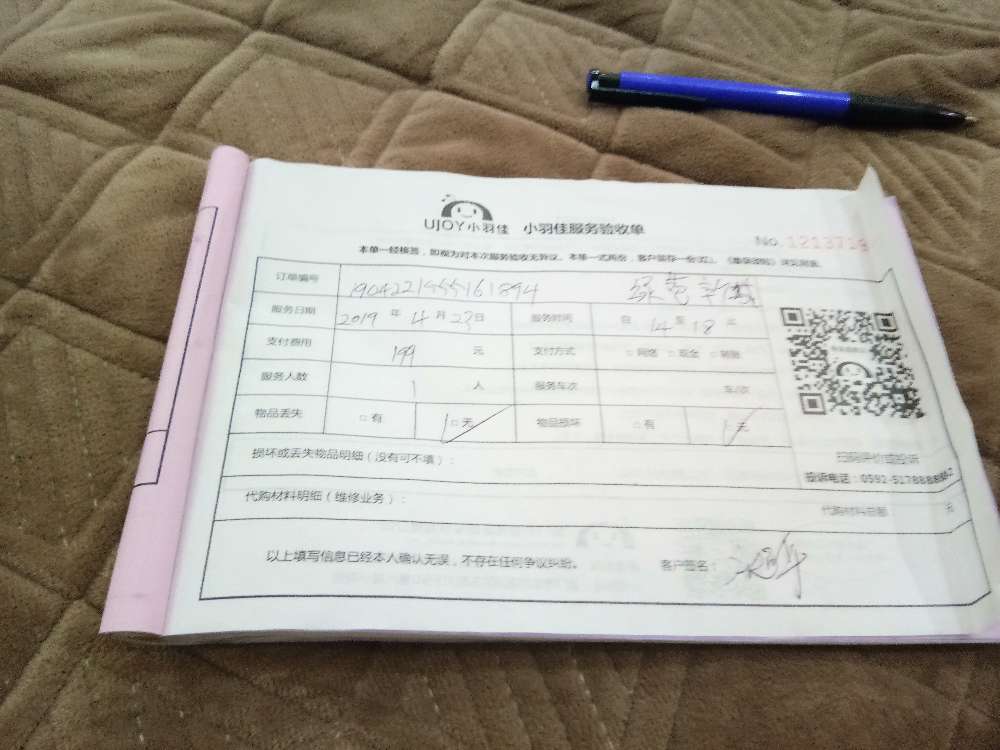 UJOY小羽佳 小羽佳服务验收单
No. 1213718
本单一经核签，即视为对本次服务验收无异议。本单一式两份，客户留存一份
订单编号 1904221955161894 绿苑新城
服务日期 2019 年 4 月 23 日 服务时间 自 14 至 18 止
支付费用 199 元 支付方式 □网络 □现金 □转账
服务人数 1 人 服务车次 车/次
物品丢失 □有 □无 物品损坏 □有 □无
扫码评价或投诉
损坏或丢失物品明细（没有可不填）：
投诉电话：0592-5178888
代购材料明细（维修业务）： 代购材料总额 元
以上填写信息已经本人确认无误，不存在任何争议纠纷。 客户签名：